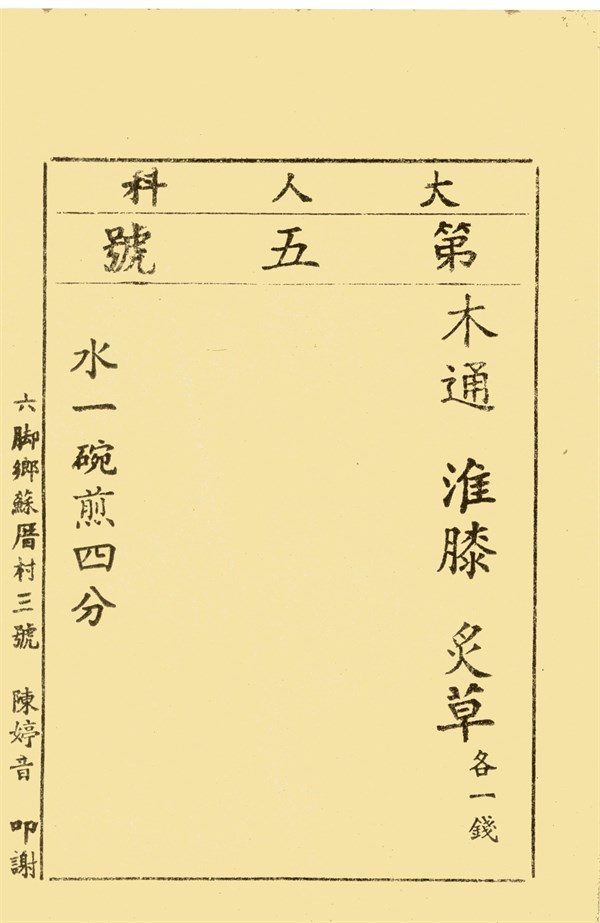 大人科
第五號
木通 淮膝 炙草各一錢
水一碗煎四分
六脚鄉蘇厝村三號 陳婷音 叩謝